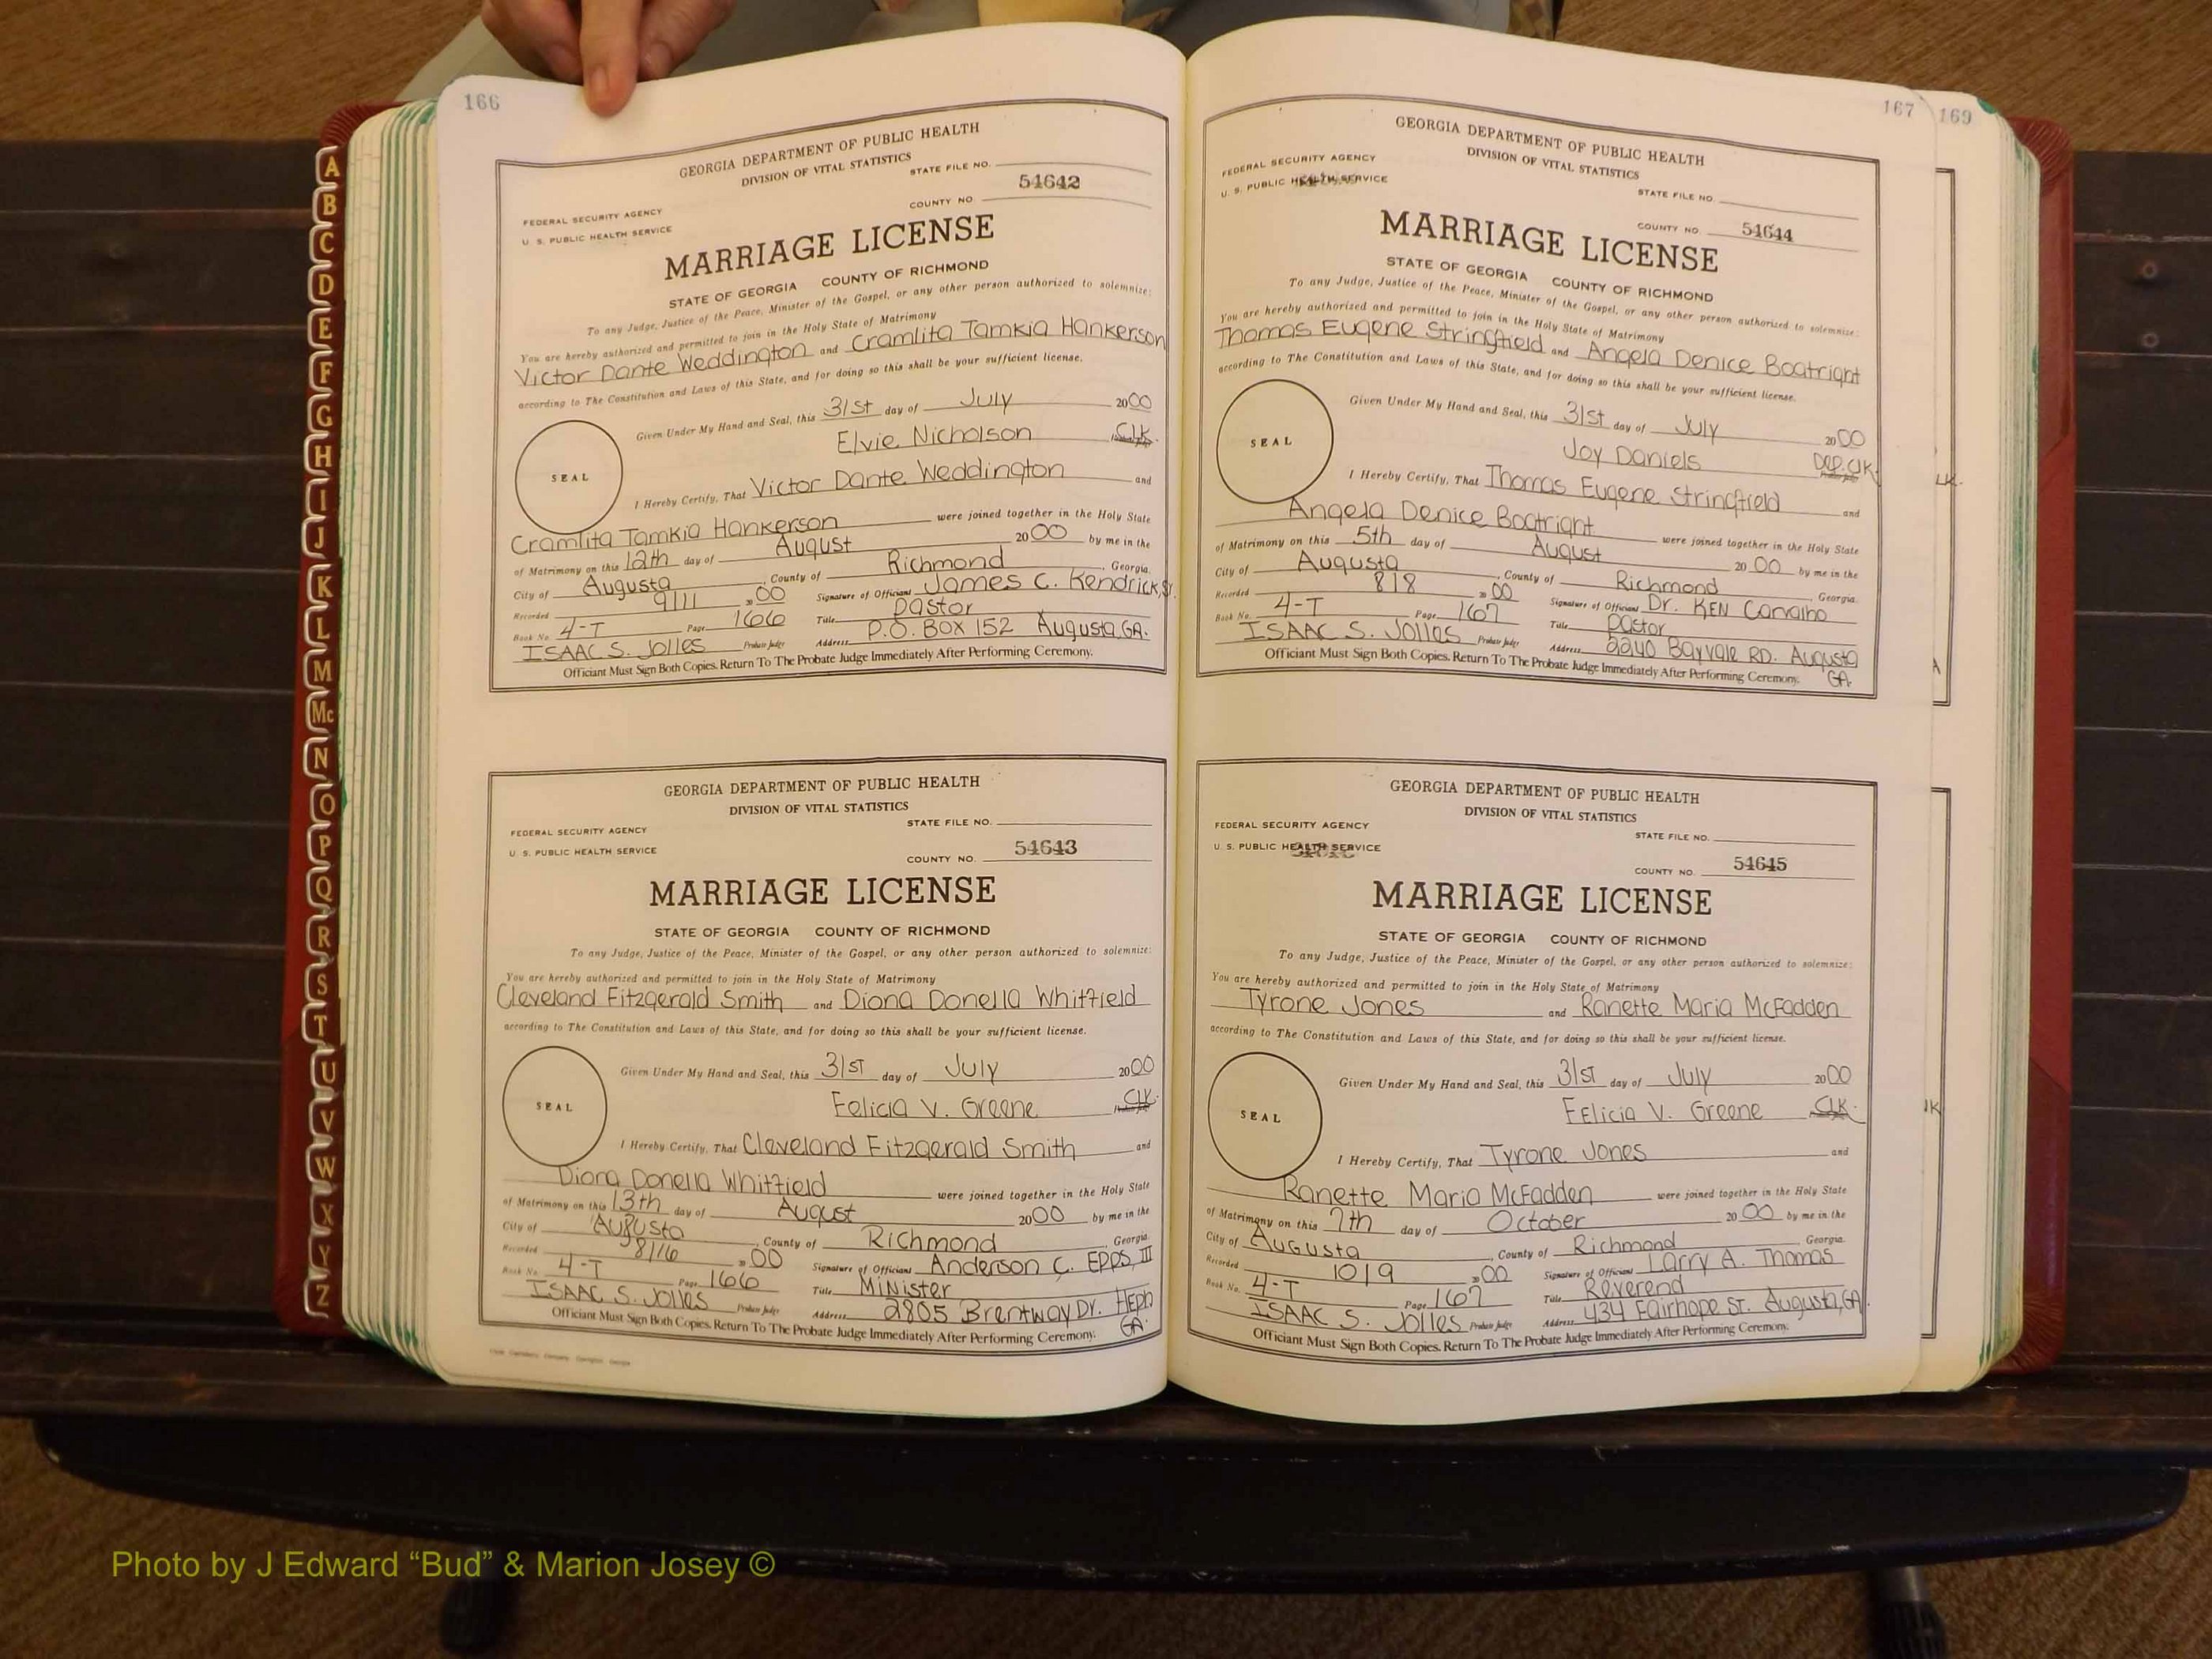 166
GEORGIA DEPARTMENT OF PUBLIC HEALTH
DIVISION OF VITAL STATISTICS
STATE FILE NO.
54642
COUNTY NO
FEDERAL SECURITY AGENCY
U. S. PUBLIC HEALTH SERVICE
MARRIAGE LICENSE
STATE OF GEORGIA COUNTY OF RICHMOND
To any Judge, Justice of the Peace, Minister of the Gospel, or any other person authorized to solemnize:
You are hereby authorized and permitted to join in the Holy State of Matrimony
Victor Dante Weddington and Cramlita Tamkia Hankerson
according to The Constitution and Laws of this State, and for doing so this shall be your sufficient license.
Given Under My Hand and Seal, this 31st day of July 2000
Elvie Nicholson CLK.
SEAL
I Hereby Certify, That Victor Dante Weddington and
Cramlita Tamkia Hankerson were joined together in the Holy State
of Matrimony on this 12th day of August 2000 by me in the
City of Augusta, County of Richmond, Georgia.
Recorded 9/11 2000 Signature of Officiant James C. Kendrick, Sr.
Book No. 4-T Page 166 Title Pastor
ISAAC S. Jolles Probate Judge Address P.O. BOX 152 Augusta, GA.
Officiant Must Sign Both Copies. Return To The Probate Judge Immediately After Performing Ceremony.
GEORGIA DEPARTMENT OF PUBLIC HEALTH
DIVISION OF VITAL STATISTICS
STATE FILE NO.
FEDERAL SECURITY AGENCY
U. S. PUBLIC HEALTH SERVICE
COUNTY NO. 54643
MARRIAGE LICENSE
STATE OF GEORGIA COUNTY OF RICHMOND
To any Judge, Justice of the Peace, Minister of the Gospel, or any other person authorized to solemnize:
You are hereby authorized and permitted to join in the Holy State of Matrimony
Cleveland Fitzgerald Smith and Diona Donella Whitfield
according to The Constitution and Laws of this State, and for doing so this shall be your sufficient license.
Given Under My Hand and Seal, this 31st day of July 2000
Felicia V. Greene CLK.
SEAL
I Hereby Certify, That Cleveland Fitzgerald Smith and
Diona Donella Whitfield were joined together in the Holy State
of Matrimony on this 13th day of August 2000 by me in the
City of Augusta, County of Richmond, Georgia.
Recorded 8/16 2000 Signature of Officiant Anderson C. EPPS, III
Book No. 4-T Page 166 Title Minister
ISAAC S. Jolles Probate Judge Address 2805 Brentway Dr. Heph
GA.
Officiant Must Sign Both Copies. Return To The Probate Judge Immediately After Performing Ceremony.
167
GEORGIA DEPARTMENT OF PUBLIC HEALTH
DIVISION OF VITAL STATISTICS
FEDERAL SECURITY AGENCY
U. S. PUBLIC HEALTH SERVICE
STATE FILE NO.
COUNTY NO. 54644
MARRIAGE LICENSE
STATE OF GEORGIA COUNTY OF RICHMOND
To any Judge, Justice of the Peace, Minister of the Gospel, or any other person authorized to solemnize:
You are hereby authorized and permitted to join in the Holy State of Matrimony
Thomas Eugene Stringfield and Angela Denice Boatright
according to The Constitution and Laws of this State, and for doing so this shall be your sufficient license.
Given Under My Hand and Seal, this 31st day of July 2000
Joy Daniels Dep. Clk.
SEAL
I Hereby Certify, That Thomas Eugene Stringfield and
Angela Denice Boatright were joined together in the Holy State
of Matrimony on this 5th day of August 2000 by me in the
City of Augusta, County of Richmond, Georgia.
Recorded 8/8 2000 Signature of Officiant Dr. KEN Carvalho
Book No. 4-T Page 167 Title Pastor
ISAAC S. Jolles Probate Judge Address 2240 Bayvale RD. Augusta
GA.
Officiant Must Sign Both Copies. Return To The Probate Judge Immediately After Performing Ceremony.
GEORGIA DEPARTMENT OF PUBLIC HEALTH
DIVISION OF VITAL STATISTICS
FEDERAL SECURITY AGENCY
U. S. PUBLIC HEALTH SERVICE
STATE FILE NO.
COUNTY NO. 54645
MARRIAGE LICENSE
STATE OF GEORGIA COUNTY OF RICHMOND
To any Judge, Justice of the Peace, Minister of the Gospel, or any other person authorized to solemnize:
You are hereby authorized and permitted to join in the Holy State of Matrimony
Tyrone Jones and Ranette Maria McFadden
according to The Constitution and Laws of this State, and for doing so this shall be your sufficient license.
Given Under My Hand and Seal, this 31st day of July 2000
FElicia V. Greene CLK.
SEAL
I Hereby Certify, That Tyrone Jones and
Ranette Maria McFadden were joined together in the Holy State
of Matrimony on this 7th day of October 2000 by me in the
City of Augusta, County of Richmond, Georgia.
Recorded 10/9 2000 Signature of Officiant Larry A. Thomas
Book No. 4-T Page 167 Title Reverend
ISAAC S. Jolles Probate Judge Address 434 Fairhope St. Augusta, GA.
Officiant Must Sign Both Copies. Return To The Probate Judge Immediately After Performing Ceremony.
169
A
B
C
D
E
F
G
H
I
J
K
L
M
Mc
N
O
P
Q
R
S
T
U
V
W
X
Y
Z
Photo by J Edward “Bud” & Marion Josey ©